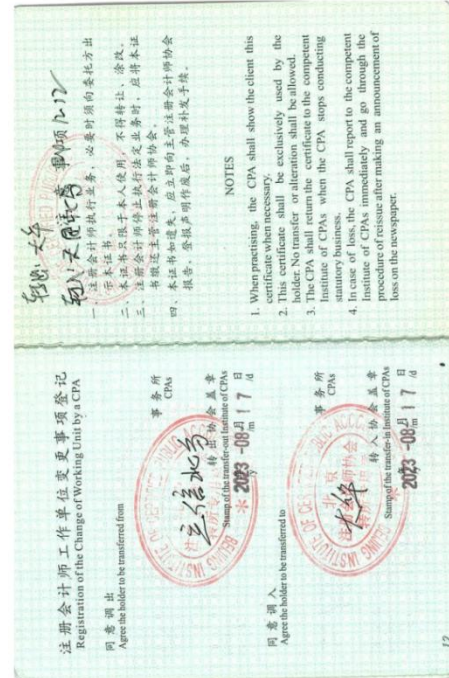 注册会计师工作单位变更事项登记
Registration of the Change of Working Unit by a CPA
同意调出
Agree the holder to be transferred from
立信北分
事务所
CPAs
转出协会盖章
Stamp of the transfer-out Institute of CPAs
2023 -08月 17日
/y /m /d
同意调入
Agree the holder to be transferred to
大华
事务所
CPAs
转入协会盖章
Stamp of the transfer-in Institute of CPAs
2023 -08月 17日
/m /d
12
转出: 大华
转入: 天
12.12
注意事项
一、注册会计师执行业务，必要时须向委托方出
示本证书。
二、本证书只限于本人使用，不得转让、涂改。
三、注册会计师停止执行法定业务时，应将本证
书缴还主管注册会计师协会
四、本证书如遗失，应立即向主管注册会计师协会
报告，登报声明作废后，办理补发手续。
NOTES
1. When practising, the CPA shall show the client this
certificate when necessary.
2. This certificate shall be exclusively used by the
holder. No transfer or alteration shall be allowed.
3. The CPA shall return the certificate to the competent
Institute of CPAs when the CPA stops conducting
statutory business.
4. In case of loss, the CPA shall report to the competent
Institute of CPAs immediately and go through the
procedure of reissue after making an announcement of
loss on the newspaper.